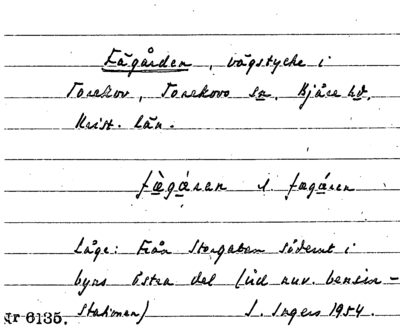 Fägården, vägstycke i
Torekov, Torekovs sn. Bjäre hd.
Krist. län.
fǡgáran l fægáren
Läge: Från Storgatan söderut i
byns östra del (vid nuv. bensin-
stationen) S. Ingers 1954.
Nr 6135.